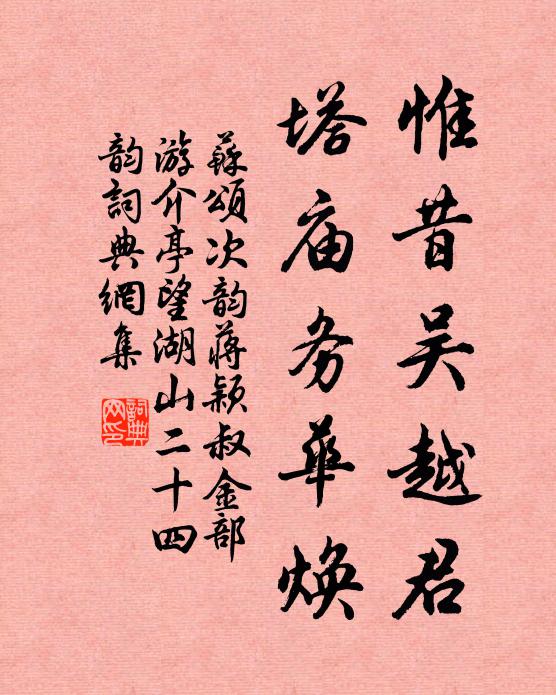 惟昔吴越君
塔庙务華焕
蘇頌次韵蒋颖叔金部
游介亭望湖山二十四
韵詞典網集
詞典网印